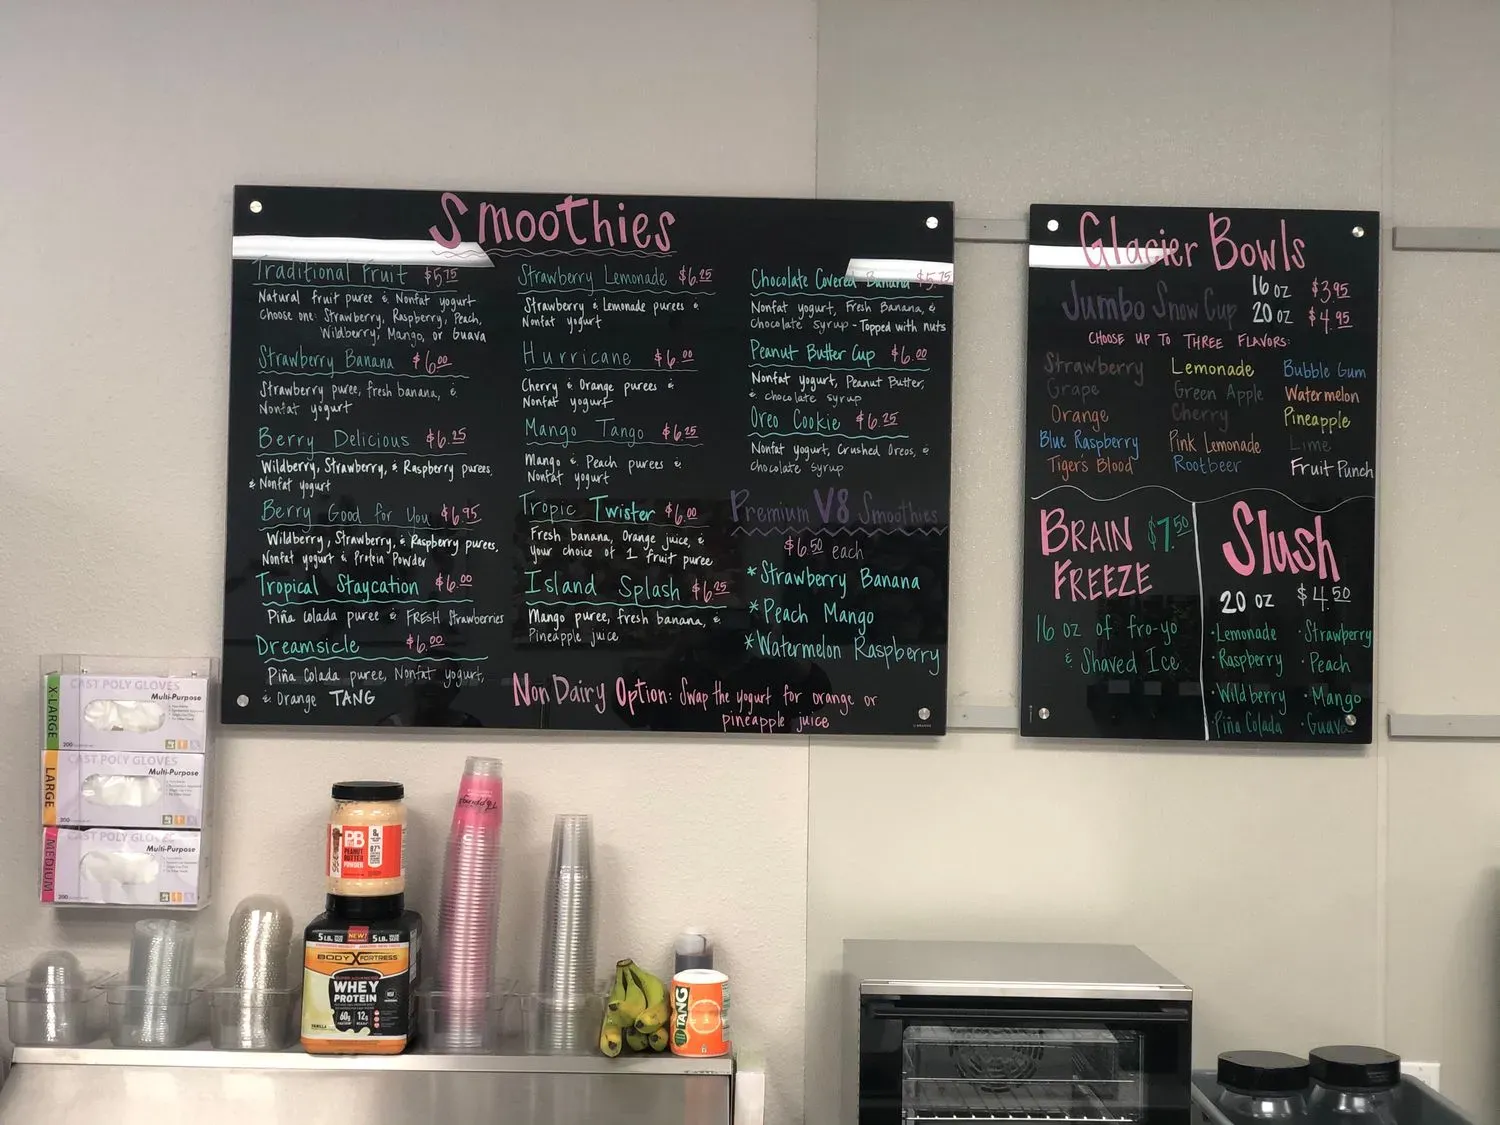 Smoothies
Traditional Fruit $5.75
Natural fruit puree & Nonfat yogurt
Choose one: Strawberry, Raspberry, Peach,
Wildberry, Mango, or Guava
Strawberry Banana $6.00
Strawberry puree, fresh banana, &
Nonfat yogurt
Berry Delicious $6.25
Wildberry, Strawberry, & Raspberry purees,
& Nonfat yogurt
Berry Good for You $6.95
Wildberry, Strawberry, & Raspberry purees,
Nonfat yogurt & Protein Powder
Tropical Staycation $6.00
Piña colada puree & FRESH Strawberries
Dreamsicle $6.00
Piña Colada puree, Nonfat yogurt,
& Orange TANG
Strawberry Lemonade $6.25
Strawberry & Lemonade purees &
Nonfat yogurt
Hurricane $6.00
Cherry & Orange purees &
Nonfat yogurt
Mango Tango $6.25
Mango & Peach purees &
Nonfat yogurt
Tropic Twister $6.00
Fresh banana, Orange juice, &
your choice of 1 fruit puree
Island Splash $6.25
Mango puree, fresh banana, &
Pineapple juice
Chocolate Covered Banana $5.75
Nonfat yogurt, Fresh Banana, &
Chocolate syrup - Topped with nuts
Peanut Butter Cup $6.00
Nonfat yogurt, Peanut Butter,
& chocolate syrup
Oreo Cookie $6.25
Nonfat yogurt, Crushed Oreos, &
Chocolate syrup
Premium V8 Smoothies
$6.50 each
*Strawberry Banana
*Peach Mango
*Watermelon Raspberry
Non Dairy Option: Swap the yogurt for orange or
pineapple juice
Glacier Bowls
Jumbo Snow Cup
16 oz $3.95
20 oz $4.95
CHOOSE UP TO THREE FLAVORS:
Strawberry
Grape
Orange
Blue Raspberry
Tiger's Blood
Lemonade
Green Apple
Cherry
Pink Lemonade
Rootbeer
Bubble Gum
Watermelon
Pineapple
Lime
Fruit Punch
BRAIN $7.50
FREEZE
16 oz of fro-yo
& Shaved Ice
Slush
20 oz $4.50
·Lemonade
·Raspberry
·Wildberry
·Piña Colada
·Strawberry
·Peach
·Mango
·Guava
CAST POLY GLOVES
Multi-Purpose
X-LARGE
200
CAST POLY GLOVES
Multi-Purpose
LARGE
200
CAST POLY GLOVES
Multi-Purpose
MEDIUM
200
PB
PEANUT
BUTTER
POWDER
8g
87%
5 LB. NEW! 5 LB.
BODY FORTRESS
WHEY
PROTEIN
60g 12g
VANILLA
NSF
TANG